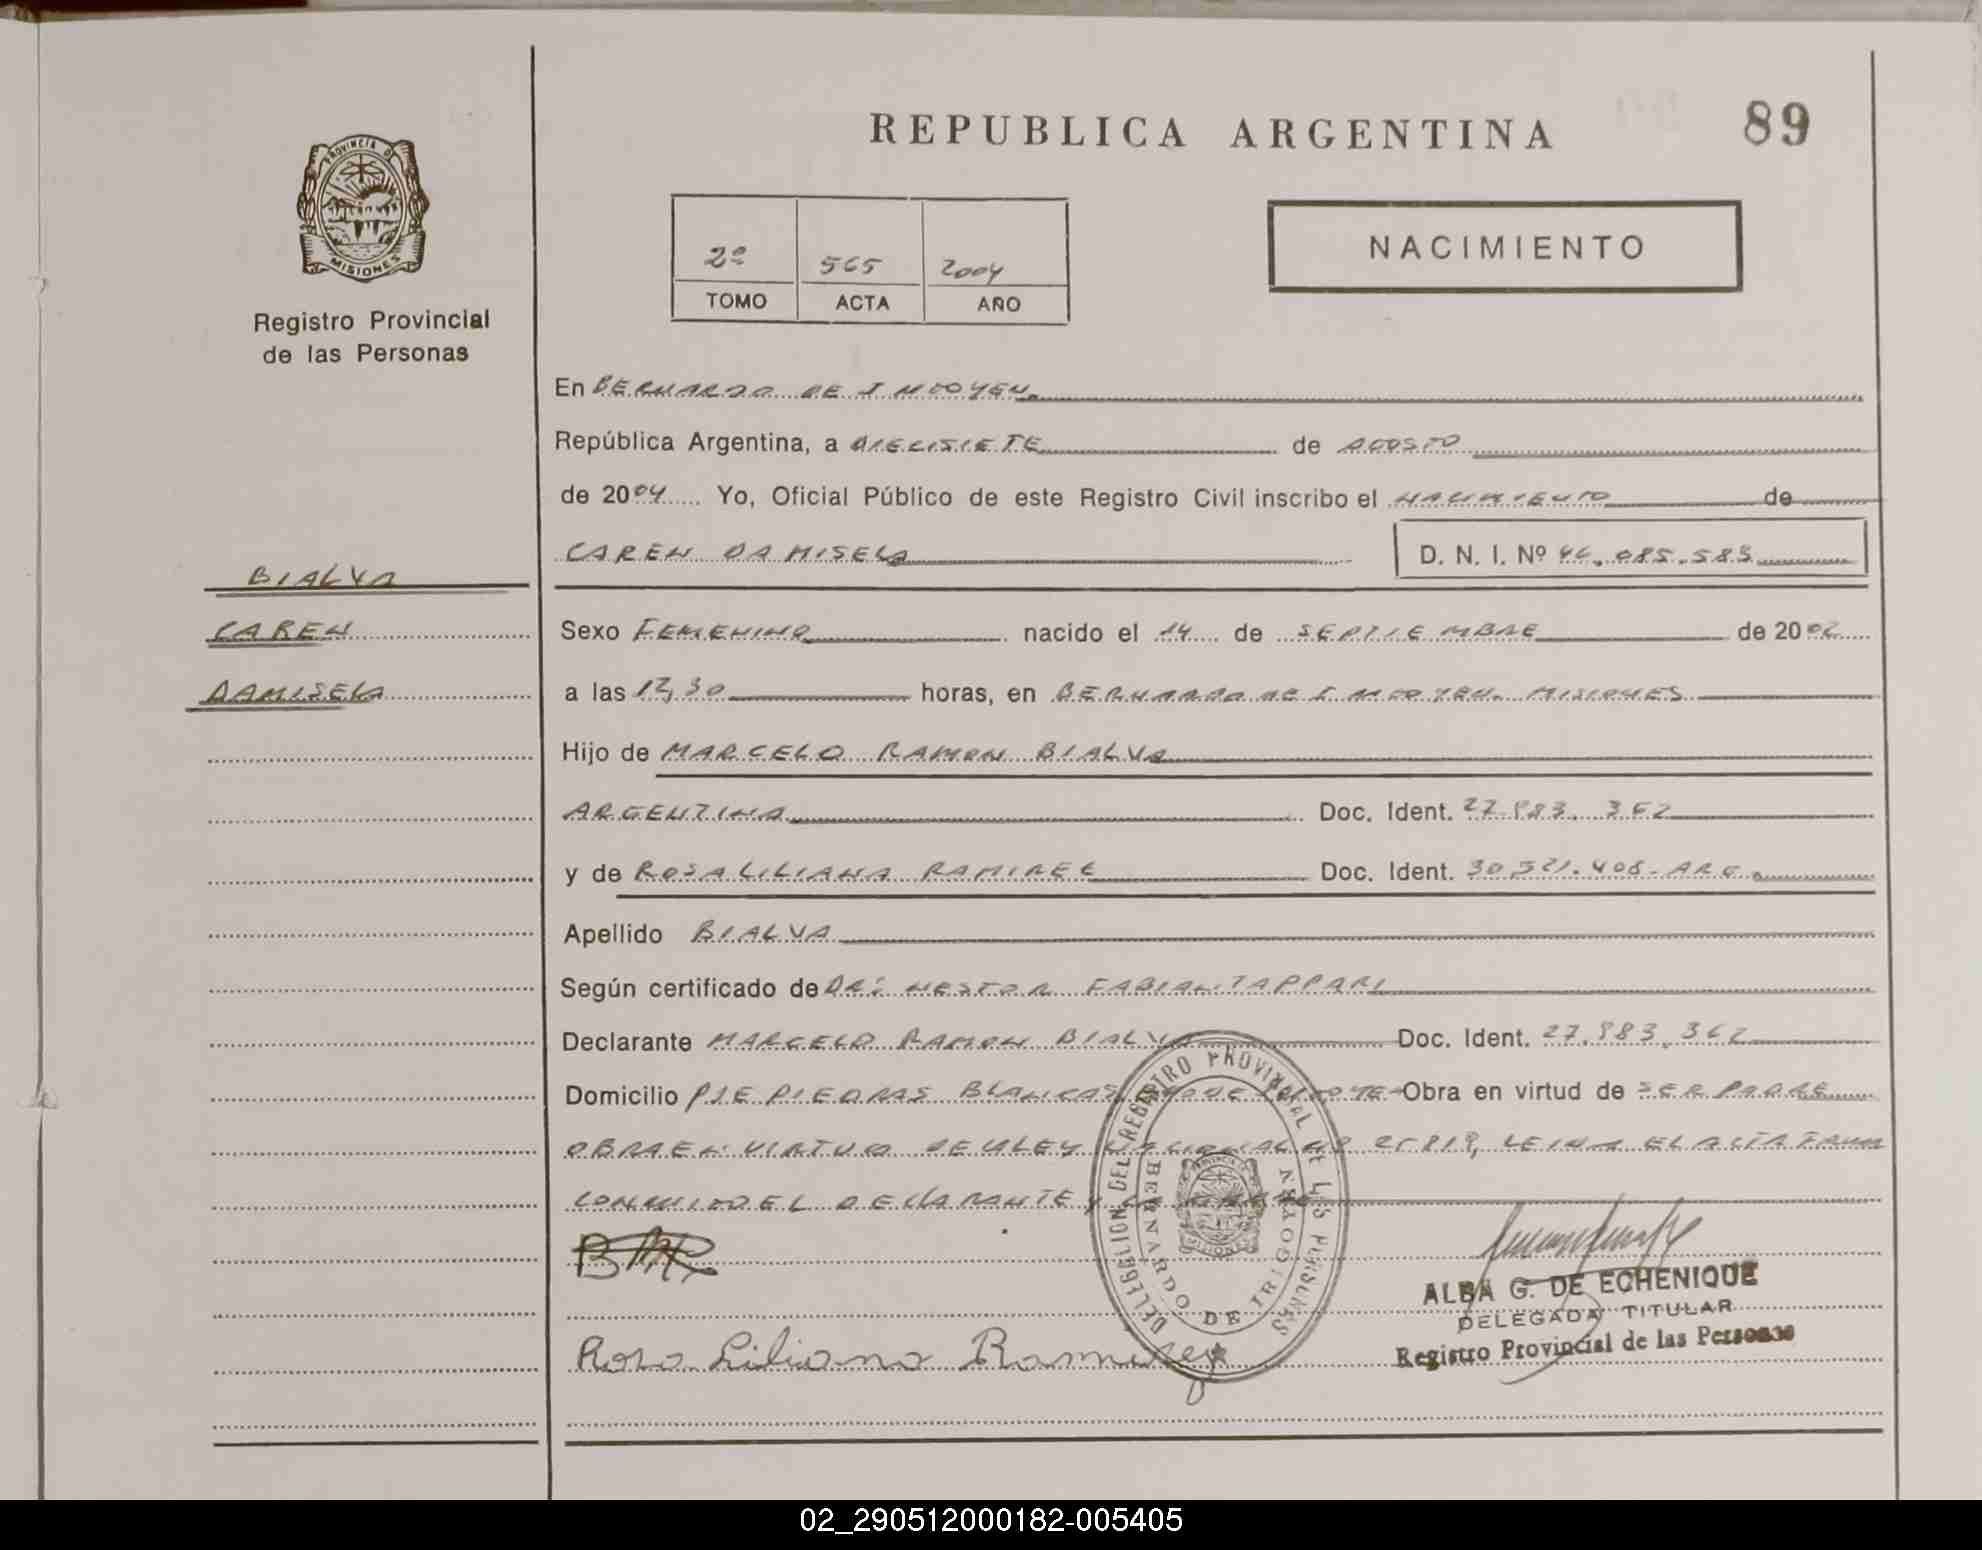 REPUBLICA ARGENTINA
89
PROVINCIA DE
MISIONES
Registro Provincial
de las Personas
2º 565 2004
TOMO ACTA AÑO
NACIMIENTO
En BERNARDO DE IRIGOYEN
República Argentina, a DIECISIETE de AGOSTO
de 2004 Yo, Oficial Público de este Registro Civil inscribo el NACIMIENTO de
CAREN DAMISELA D. N. I. Nº 46.085.583
BIALVA
CAREN
DAMISELA
Sexo FEMENINO nacido el 14 de SEPTIEMBRE de 2002
a las horas, en BERNARDO DE IRIGOYEN. MISIONES
Hijo de MARCELO RAMON BIALVA
ARGENTINA Doc. Ident. 27.983.362
y de ROSA LILIANA RAMIREZ Doc. Ident. 30.521.408-ARG.
Apellido BIALVA
Según certificado de DR: NESTOR FABIAN TAPPARI
Declarante MARCELO RAMON BIALVA Doc. Ident. 27.983.362
Domicilio PJE PIEDRAS BLANCAS Obra en virtud de SER PADRE
OBRA EN VIRTUD DE LA LEY NACIONAL Nº 25819, LEIDA EL ACTA FIRMA
CONMIGO EL DECLARANTE Y LA MADRE
DELEGACION DEL REGISTRO PROVINCIAL DE LAS PERSONAS
BERNARDO DE IRIGOYEN
ALBA G. DE ECHENIQUE
DELEGADA TITULAR
Registro Provincial de las Personas
Rosa Liliana Ramirez
02_290512000182-005405